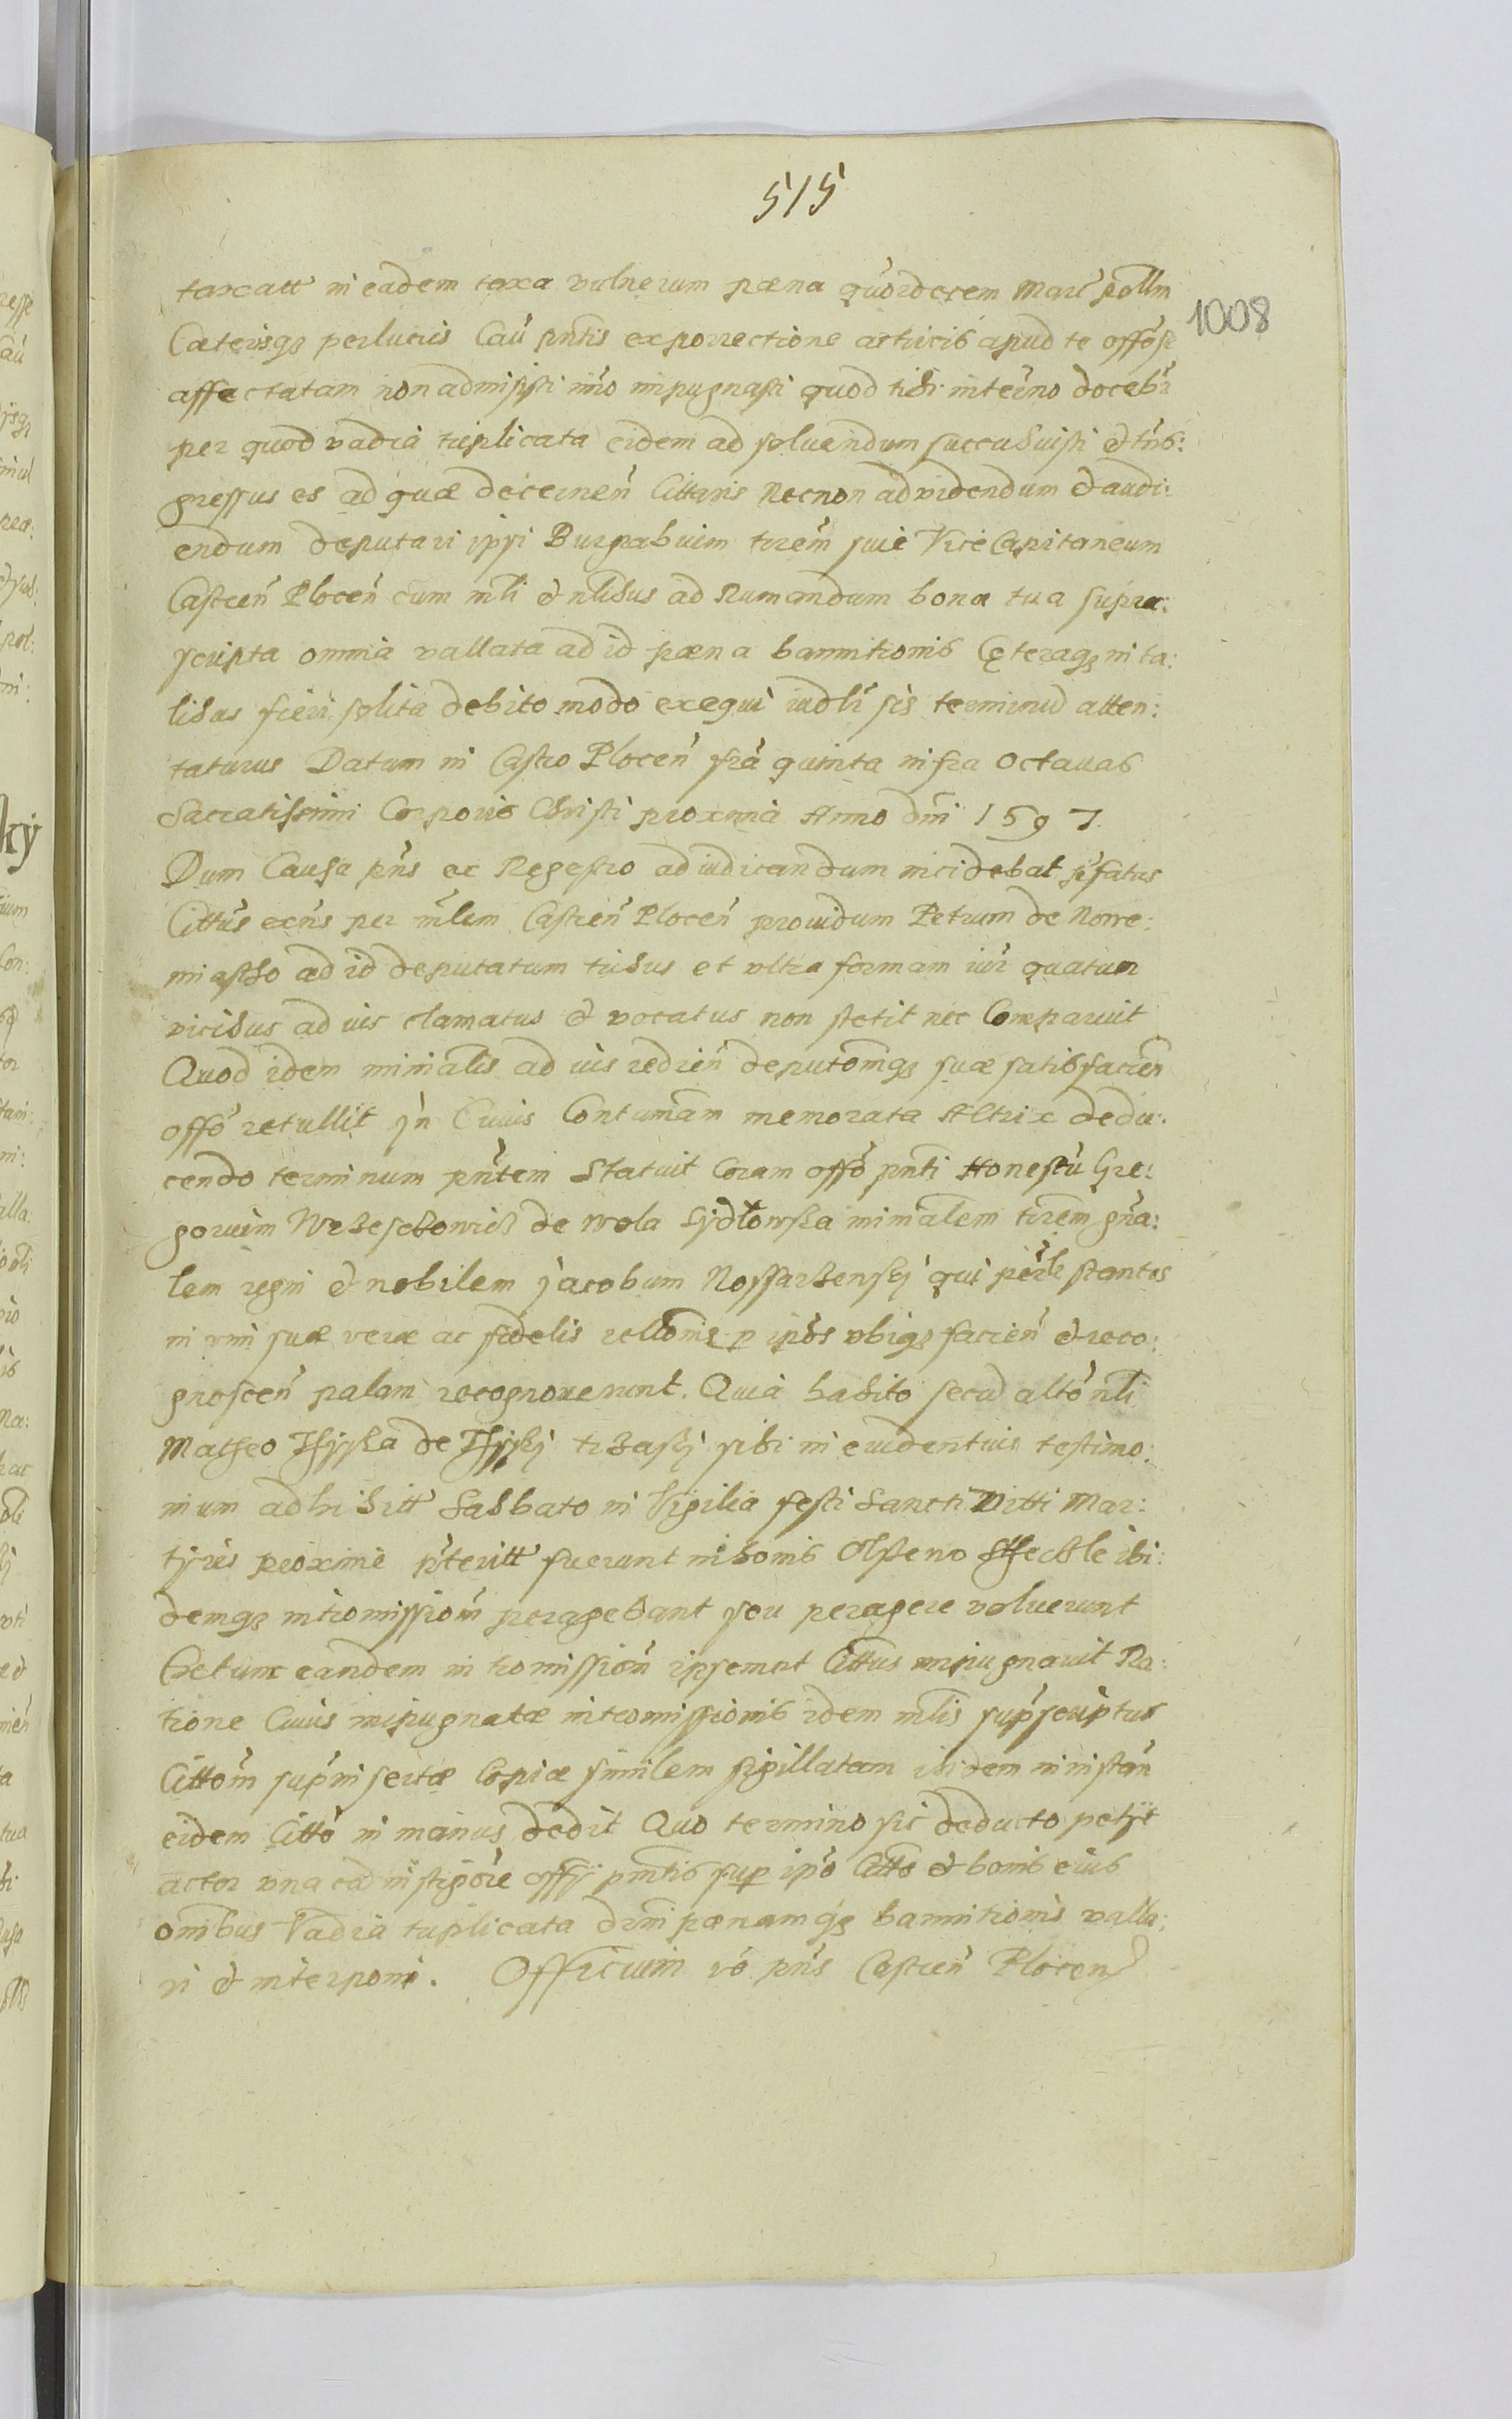 515
1008
taxcatt in eadem taxa vulnerum pæna quordecem Marc pollm
Cæterisq perlucris Cau pntis exporrectione actricis apud te offose
affectatam non admisisti imo impugnasti quod tibi in terno docebr
per quod vadia triplicata eidem ad soluendum succubuisti & tns:
gressus es ad quæ decernen Cittaris Necnon ad videndum & audi:
endum deputari ipsi Burgrabium trem sive Vice Capitaneum
Castren Plocen cum mli & nlibus ad Rumandum bona tua supra:
scripta omnia vallata ad id pæna bannitionis Cęteraq in ta:
libus fieri solita debito modo exequi iudlr sis terminu atten:
taturus Datum in Castro Plocen fra quinta infra Octauas
Sacratissimi Corporis Christi proxima Anno dni 1597.
Dum Causa pns ex Regestro ad iudicandum incidebat pfatus
Cittus exns per mlem Castren Plocen prouidum Petrum de Nowe:
miasto ad id deputatum tribus et vltra formam iur quatuor
vicibus ad ius clamatus & vocatus non stetit nec Comparuit
Quod idem minialis ad ius redien deputomq suæ satisfacien
offo retullit Jn Cuius Contumam memorata Actrix dedu:
cendo terminum pntem Statuit Coram offo pnti Honestu Gre:
gorium Wrzeschowicz de Wola Sydłowska minialem trem gna:
lem regni & nobilem Jacobum Nossarzensky qui perlr stantes
in vim suæ veræ ac fidelis relloms p ipos vbiq facien & reco:
gnoscen palam recognouerunt. Quia habito secu alto nli
Matheo Jlyska de Jlysky trzasky sibi in euidentius testimo:
nium adhibitt Sabbato in Vigilia festi Sancti Vitti Mar:
tyris proxime pteritt fuerunt in bonis Olsseno ibi:
demq intromissiom peragebant seu peragere voluerunt
Cætum eandem intromissiom ipsemet Cittus impugnauit Ra:
tione Cuius impugnatæ intromissionis idem mlis supscriptus
Cittom sup insertæ Copiæ similem sigillatam ibidem in instan
eidem Citto in manus dedit Quo termino sic deducto petyt
actor vna cu instigore offy pntis sup ipo Citto & bonis eius
omibus Vadia triplicata dmi pænamq bannitionis valla:
ri & interponi. Officium vo pns Castren Plocens